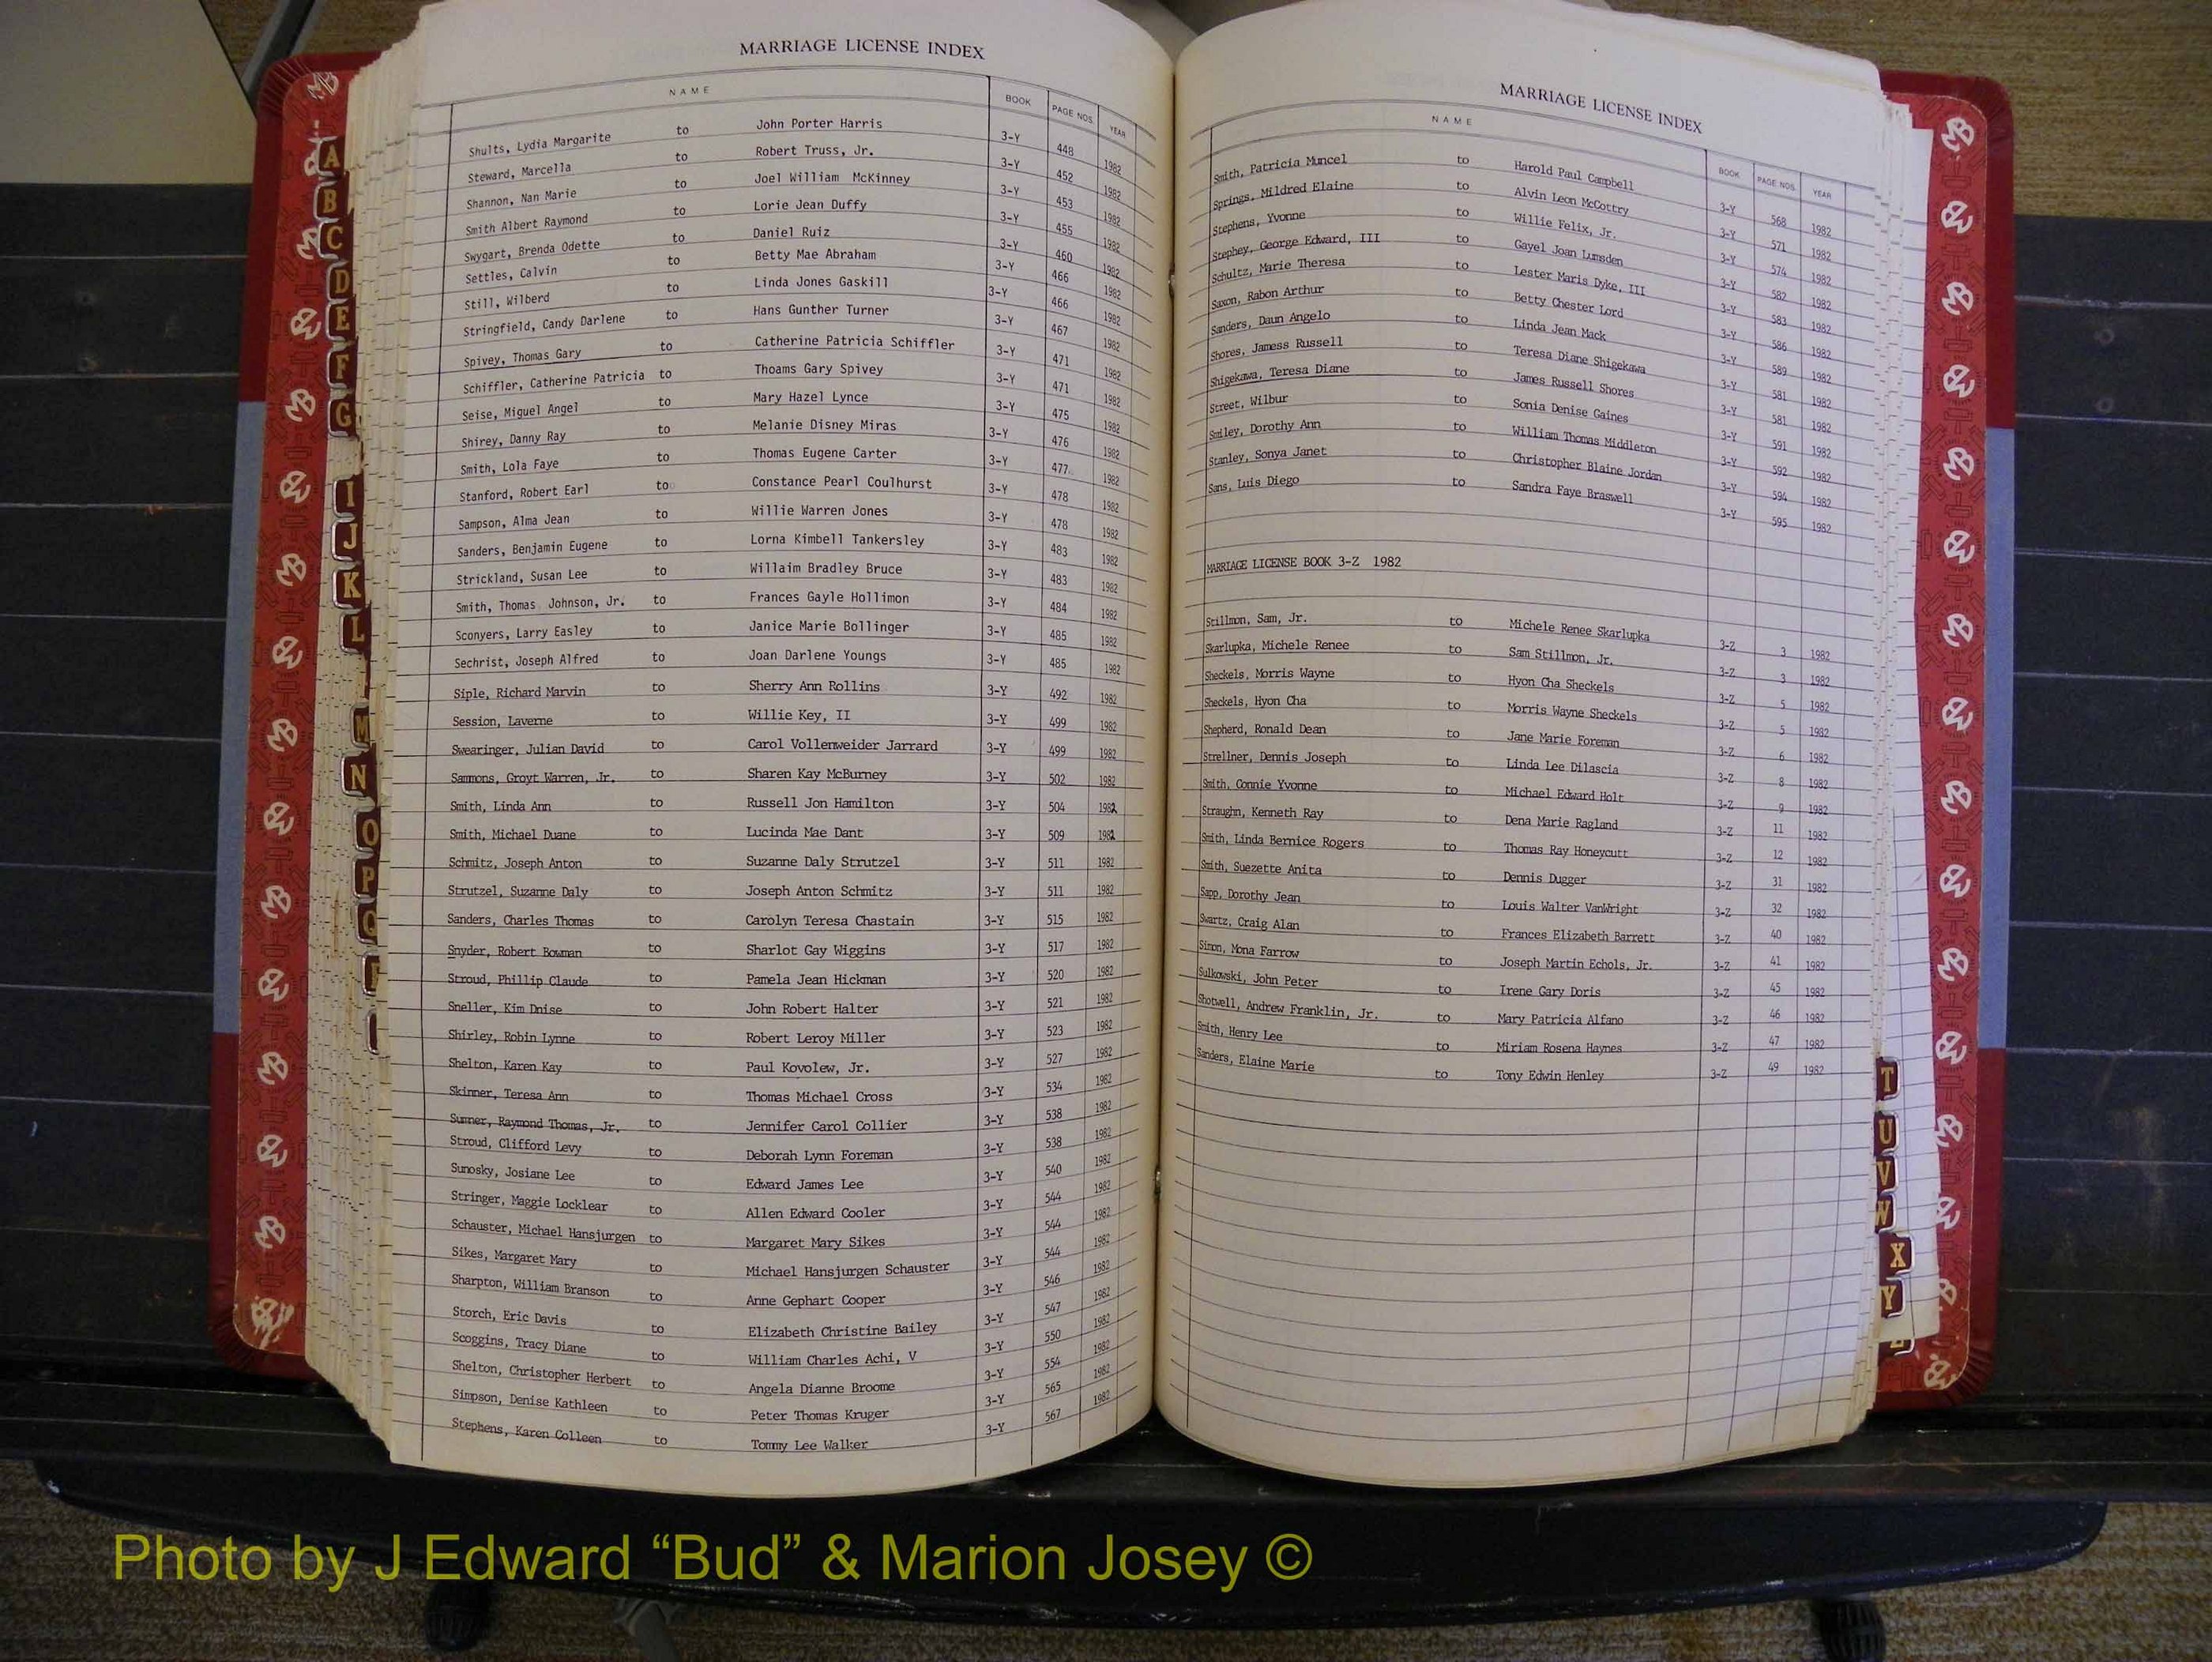 MARRIAGE LICENSE INDEX
NAME BOOK PAGE NOS. YEAR
Shults, Lydia Margarite to John Porter Harris 3-Y 448 1982
Steward, Marcella to Robert Truss, Jr. 3-Y 452 1982
Shannon, Nan Marie to Joel William McKinney 3-Y 453 1982
Smith Albert Raymond to Lorie Jean Duffy 3-Y 455 1982
Swygart, Brenda Odette to Daniel Ruiz 3-Y 460 1982
Settles, Calvin to Betty Mae Abraham 3-Y 466 1982
Still, Wilberd to Linda Jones Gaskill 3-Y 466 1982
Stringfield, Candy Darlene to Hans Gunther Turner 3-Y 467 1982
Spivey, Thomas Gary to Catherine Patricia Schiffler 3-Y 471 1982
Schiffler, Catherine Patricia to Thoams Gary Spivey 3-Y 471 1982
Seise, Miguel Angel to Mary Hazel Lynce 3-Y 475 1982
Shirey, Danny Ray to Melanie Disney Miras 3-Y 476 1982
Smith, Lola Faye to Thomas Eugene Carter 3-Y 477 1982
Stanford, Robert Earl to Constance Pearl Coulhurst 3-Y 478 1982
Sampson, Alma Jean to Willie Warren Jones 3-Y 478 1982
Sanders, Benjamin Eugene to Lorna Kimbell Tankersley 3-Y 483 1982
Strickland, Susan Lee to Willaim Bradley Bruce 3-Y 483 1982
Smith, Thomas Johnson, Jr. to Frances Gayle Hollimon 3-Y 484 1982
Sconyers, Larry Easley to Janice Marie Bollinger 3-Y 485 1982
Sechrist, Joseph Alfred to Joan Darlene Youngs 3-Y 485 1982
Siple, Richard Marvin to Sherry Ann Rollins 3-Y 492 1982
Session, Laverne to Willie Key, II 3-Y 499 1982
Swearinger, Julian David to Carol Vollenweider Jarrard 3-Y 499 1982
Sammons, Groyt Warren, Jr. to Sharen Kay McBurney 3-Y 502 1982
Smith, Linda Ann to Russell Jon Hamilton 3-Y 504 1982
Smith, Michael Duane to Lucinda Mae Dant 3-Y 509 1982
Schmitz, Joseph Anton to Suzanne Daly Strutzel 3-Y 511 1982
Strutzel, Suzanne Daly to Joseph Anton Schmitz 3-Y 511 1982
Sanders, Charles Thomas to Carolyn Teresa Chastain 3-Y 515 1982
Snyder, Robert Bowman to Sharlot Gay Wiggins 3-Y 517 1982
Stroud, Phillip Claude to Pamela Jean Hickman 3-Y 520 1982
Sneller, Kim Dnise to John Robert Halter 3-Y 521 1982
Shirley, Robin Lynne to Robert Leroy Miller 3-Y 523 1982
Shelton, Karen Kay to Paul Kovolew, Jr. 3-Y 527 1982
Skinner, Teresa Ann to Thomas Michael Cross 3-Y 534 1982
Sumner, Raymond Thomas, Jr. to Jennifer Carol Collier 3-Y 538 1982
Stroud, Clifford Levy to Deborah Lynn Foreman 3-Y 538 1982
Sunosky, Josiane Lee to Edward James Lee 3-Y 540 1982
Stringer, Maggie Locklear to Allen Edward Cooler 3-Y 544 1982
Schauster, Michael Hansjurgen to Margaret Mary Sikes 3-Y 544 1982
Sikes, Margaret Mary to Michael Hansjurgen Schauster 3-Y 544 1982
Sharpton, William Branson to Anne Gephart Cooper 3-Y 546 1982
Storch, Eric Davis to Elizabeth Christine Bailey 3-Y 547 1982
Scoggins, Tracy Diane to William Charles Achi, V 3-Y 550 1982
Shelton, Christopher Herbert to Angela Dianne Broome 3-Y 554 1982
Simpson, Denise Kathleen to Peter Thomas Kruger 3-Y 565 1982
Stephens, Karen Colleen to Tommy Lee Walker 3-Y 567 1982
MARRIAGE LICENSE INDEX
NAME BOOK PAGE NOS. YEAR
Smith, Patricia Muncel to Harold Paul Campbell 3-Y 568 1982
Springs, Mildred Elaine to Alvin Leon McCottry 3-Y 571 1982
Stephens, Yvonne to Willie Felix, Jr. 3-Y 574 1982
Stephey, George Edward, III to Gayel Joan Lumsden 3-Y 582 1982
Schultz, Marie Theresa to Lester Maris Dyke, III 3-Y 583 1982
Saxon, Rabon Arthur to Betty Chester Lord 3-Y 586 1982
Sanders, Daun Angelo to Linda Jean Mack 3-Y 589 1982
Shores, Jamess Russell to Teresa Diane Shigekawa 3-Y 581 1982
Shigekawa, Teresa Diane to James Russell Shores 3-Y 581 1982
Street, Wilbur to Sonia Denise Gaines 3-Y 591 1982
Smiley, Dorothy Ann to William Thomas Middleton 3-Y 592 1982
Stanley, Sonya Janet to Christopher Blaine Jordan 3-Y 594 1982
Sans, Luis Diego to Sandra Faye Braswell 3-Y 595 1982
MARRIAGE LICENSE BOOK 3-Z 1982
Stillmon, Sam, Jr. to Michele Renee Skarlupka 3-Z 3 1982
Skarlupka, Michele Renee to Sam Stillmon, Jr. 3-Z 3 1982
Sheckels, Morris Wayne to Hyon Cha Sheckels 3-Z 5 1982
Sheckels, Hyon Cha to Morris Wayne Sheckels 3-Z 5 1982
Shepherd, Ronald Dean to Jane Marie Foreman 3-Z 6 1982
Strellner, Dennis Joseph to Linda Lee Dilascia 3-Z 8 1982
Smith, Connie Yvonne to Michael Edward Holt 3-Z 9 1982
Straughn, Kenneth Ray to Dena Marie Ragland 3-Z 11 1982
Smith, Linda Bernice Rogers to Thomas Ray Honeycutt 3-Z 12 1982
Smith, Suezette Anita to Dennis Dugger 3-Z 31 1982
Sapp, Dorothy Jean to Louis Walter VanWright 3-Z 32 1982
Swartz, Craig Alan to Frances Elizabeth Barrett 3-Z 40 1982
Simon, Mona Farrow to Joseph Martin Echols, Jr. 3-Z 41 1982
Sulkowski, John Peter to Irene Gary Doris 3-Z 45 1982
Shotwell, Andrew Franklin, Jr. to Mary Patricia Alfano 3-Z 46 1982
Smith, Henry Lee to Miriam Rosena Haynes 3-Z 47 1982
Sanders, Elaine Marie to Tony Edwin Henley 3-Z 49 1982
A
B
C
D
E
F
G
I
J
K
L
M
N
O
P
Q
T
U
V
W
X
Y
Photo by J Edward “Bud” & Marion Josey ©